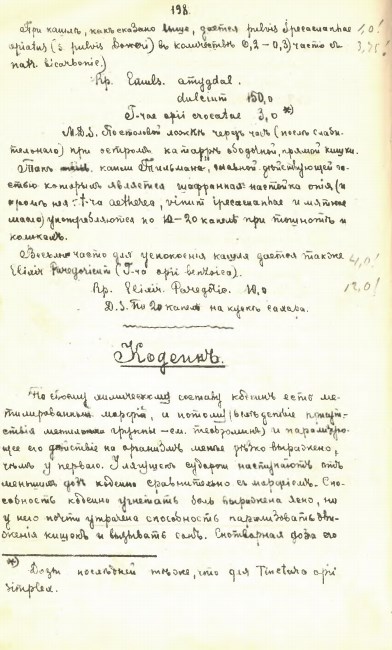 198.
При кашлѣ, какъ сказано выше, дается pulvis ipecacuanhae
opiatus (s. pulvis Doweri) въ количествѣ 0,2 – 0,3, часто съ
natr. bicarbonic.)
Rp. Emuls. amygdal.
dulcium 150,0
T-rae opii crocatae 3,0 *)
M.D.S. По столовой ложкѣ черезъ часъ (послѣ слаби-
тельнаго) при остромъ катаррѣ ободочной, прямой кишки.
Такъ капли Тильмана, главной дѣйствующей ча-
стью которыхъ является шафранная настойка опія (и
кромѣ нея t-ra aetherea, vinum ipecacuanhae и мятное
масло) употребляются по 10–20 капель при тошнотѣ и
коликахъ.
Весьма часто для успокоенія кашля дается также
Elixir Paregoricum (T-ra opii benzoica).
Rp. Elixir. Paregoric. 10,0
D.S. По 20 капель на кускѣ сахара.
Кодеинъ.
По своему химическому составу кодеинъ есть ме-
тилированный морфій, и потому (вслѣдствіе присут-
ствія метиловой группы – см. теоброминъ) и парализую-
щее его дѣйствіе на организмъ менѣе рѣзко выражено,
чѣмъ у перваго. У лягушекъ судороги наступаютъ отъ
меньшихъ дозъ кодеина сравнительно съ морфіемъ. Спо-
собность кодеина угнетать боль выражена ясно, но
у него почти утрачена способность парализовать дви-
женія кишокъ и вызывать сонъ. Снотворная доза его
*) Дозы послѣдней тѣ же, что для Tinctura opii
simplex.